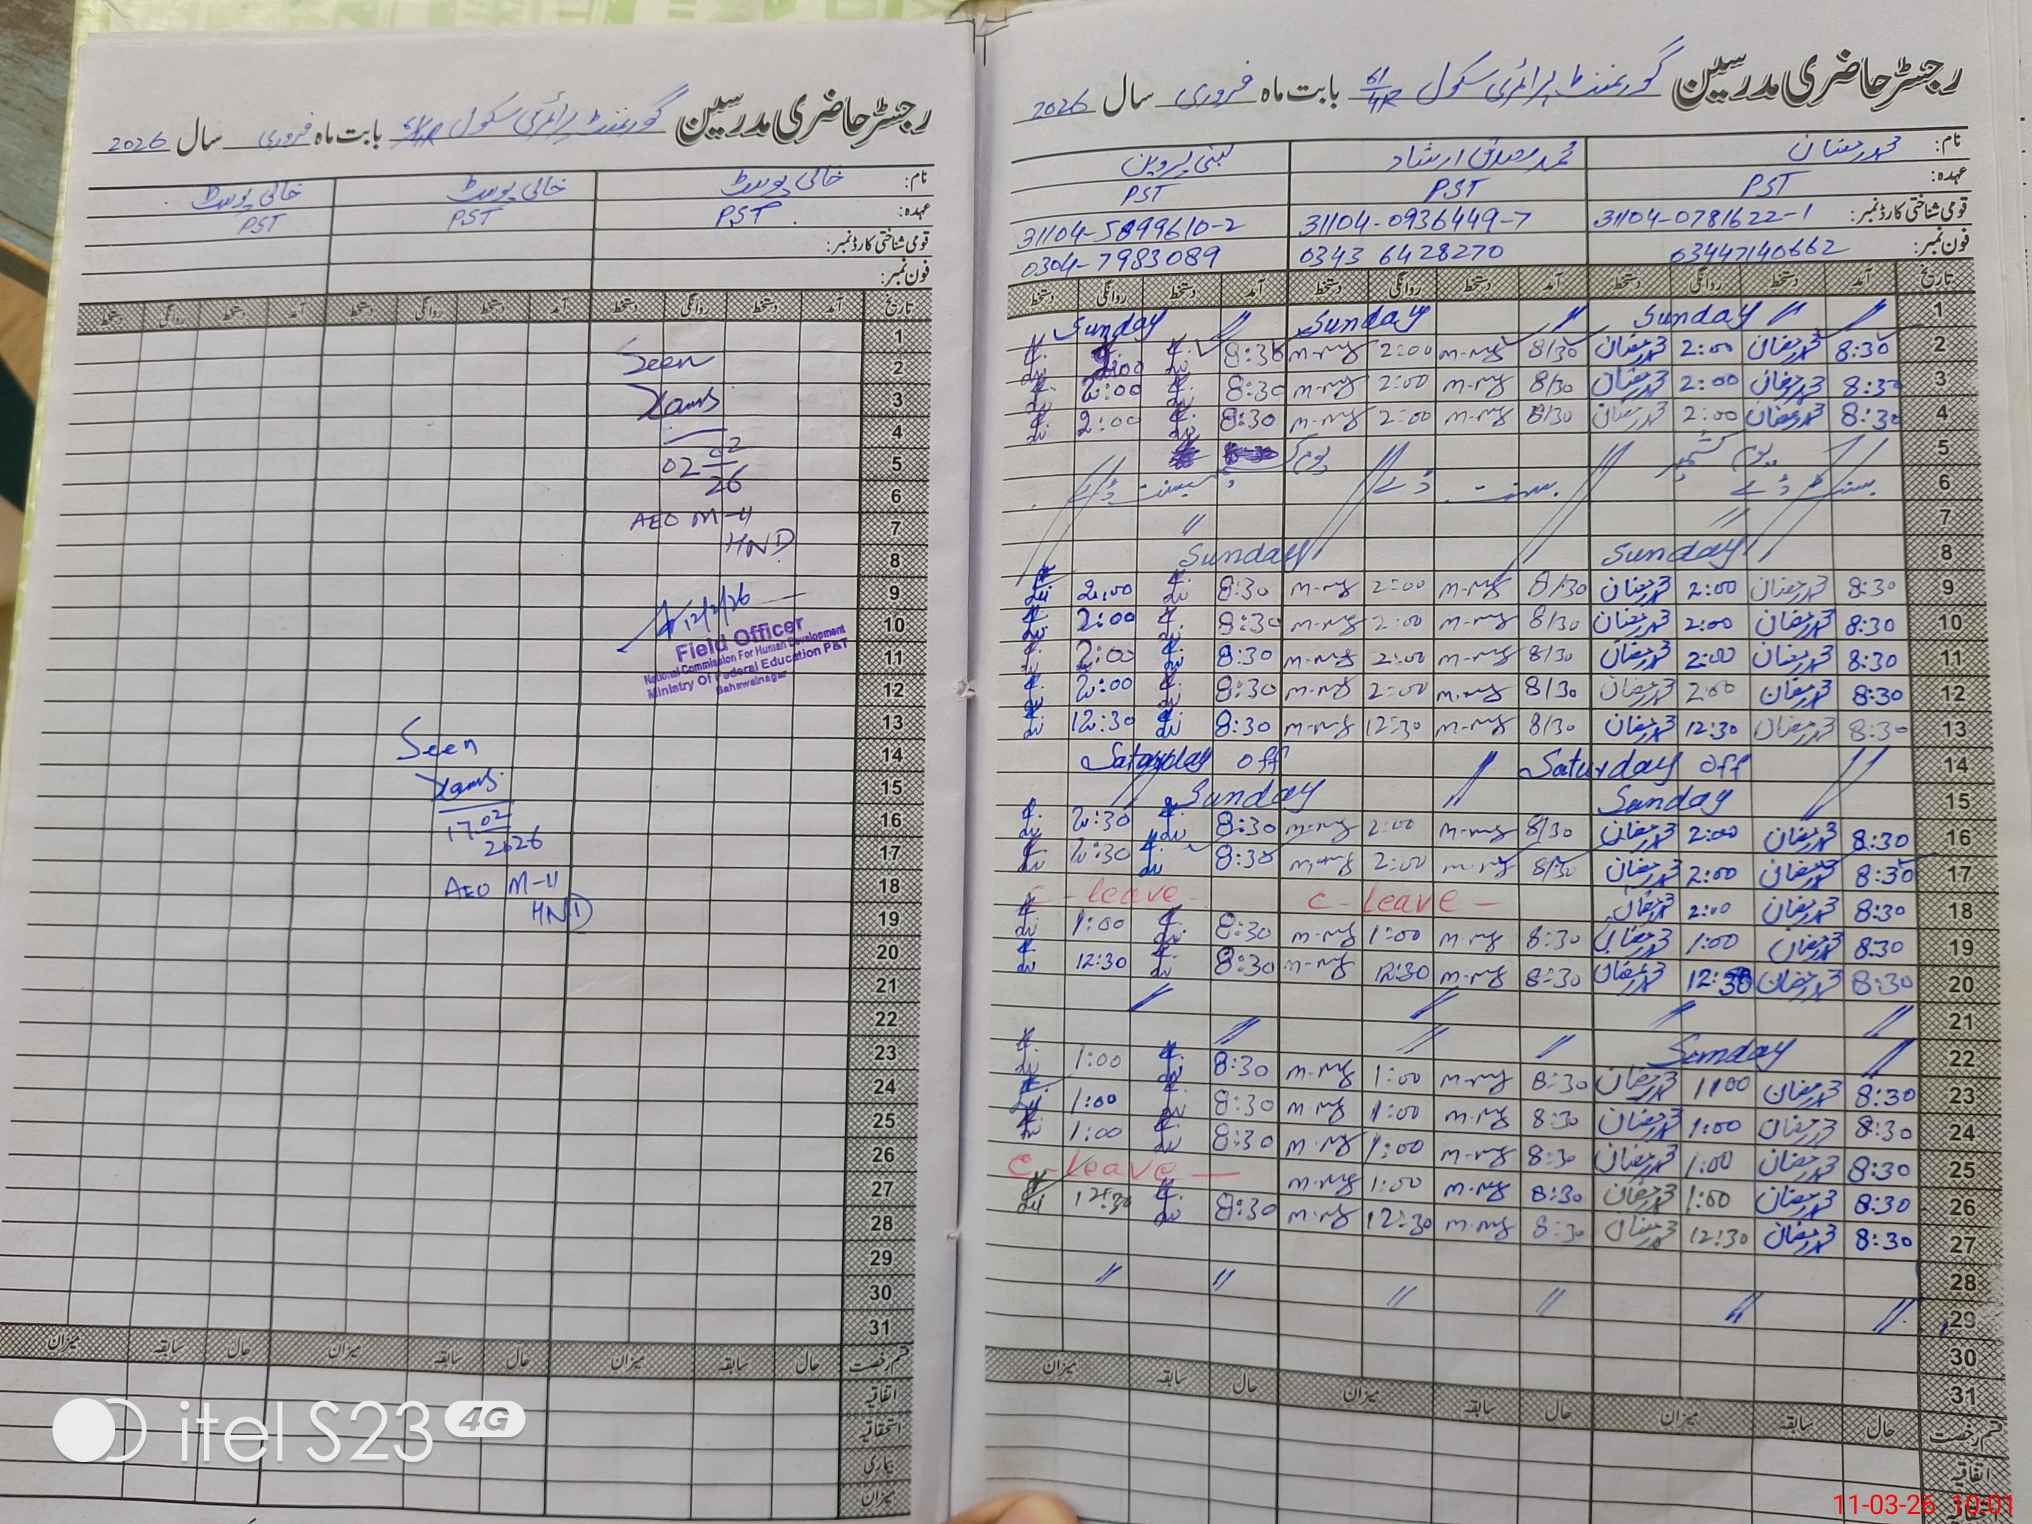 رجسٹر حاضری مدرسین گورنمنٹ پرائمری سکول 61/4R بابت ماہ فروری سال 2026
نام: خالی پوسٹ خالی پوسٹ خالی پوسٹ
عہدہ: PST PST PST
قومی شناختی کارڈ نمبر:
فون نمبر:
تاریخ آمد دستخط روانگی دستخط آمد دستخط روانگی دستخط آمد دستخط روانگی دستخط
1
2
3
4
5
6
7
8
9
10
11
12
13
14
15
16
17
18
19
20
21
22
23
24
25
26
27
28
29
30
31
Seen
02 02/26
AEO M-II
HND
12/2/26
Field Officer
National Commission For Human Development
Ministry Of Federal Education P&T
Bahawalnagar
Seen
17 02/2026
AEO M-II
HND
قسم رخصت حال سابقہ میزان حال سابقہ میزان حال سابقہ میزان
اتفاقیہ
استحقاقیہ
بیماری
میزان
itel S23 4G
رجسٹر حاضری مدرسین گورنمنٹ پرائمری سکول 61/4R بابت ماہ فروری سال 2026
نام: محمد رمضان محمد صدیق ارشاد لبنیٰ پروین
عہدہ: PST PST PST
قومی شناختی کارڈ نمبر: 31104-0781622-1 31104-0936449-7 31104-5899610-2
فون نمبر: 03447140662 0343 6428270 0304-7983089
تاریخ آمد دستخط روانگی دستخط آمد دستخط روانگی دستخط آمد دستخط روانگی دستخط
1 // // Sunday // Sunday // Sunday
2 8:30 محمد رمضان 2:00 محمد رمضان 8/30 2:00 8:30 2:00
3 8:30 محمد رمضان 2:00 محمد رمضان 8/30 2:00 8:30 2:00
4 8:30 محمد رمضان 2:00 محمد رمضان 8/30 2:00 8:30 2:00
5 یوم کشمیر یوم
6 بسنت ڈے بسنت ڈے بسنت ڈے
7 // //
8 Sunday Sunday
9 8:30 محمد رمضان 2:00 محمد رمضان 8/30 2:00 8:30 2:00
10 8:30 محمد رمضان 2:00 محمد رمضان 8/30 2:00 8:30 2:00
11 8:30 محمد رمضان 2:00 محمد رمضان 8/30 2:00 8:30 2:00
12 8:30 محمد رمضان 2:00 محمد رمضان 8/30 2:00 8:30 2:00
13 8:30 محمد رمضان 12:30 محمد رمضان 8/30 12:30 8:30 12:30
14 // Saturday off // Saturday off
15 Sunday // Sunday
16 8:30 محمد رمضان 2:00 محمد رمضان 8/30 2:00 8:30 2:30
17 8:30 محمد رمضان 2:00 محمد رمضان 8/30 2:00 8:30 2:30
18 8:30 محمد رمضان 2:00 محمد رمضان C-Leave - C-leave -
19 8:30 محمد رمضان 1:00 محمد رمضان 8:30 1:00 8:30 1:00
20 8:30 محمد رمضان 12:30 محمد رمضان 8:30 12:30 8:30 12:30
21 // // // //
22 // Sunday // // //
23 8:30 محمد رمضان 1:00 محمد رمضان 8:30 1:00 8:30 1:00
24 8:30 محمد رمضان 1:00 محمد رمضان 8:30 1:00 8:30 1:00
25 8:30 محمد رمضان 1:00 محمد رمضان 8:30 1:00 8:30 1:00
26 8:30 محمد رمضان 1:00 محمد رمضان 8:30 1:00 C-leave -
27 8:30 محمد رمضان 12:30 محمد رمضان 8:30 12:30 8:30 12:30
28 // // // // // //
29
30
31
قسم رخصت حال سابقہ میزان حال سابقہ میزان حال سابقہ میزان
اتفاقیہ
11-03-26 10:01